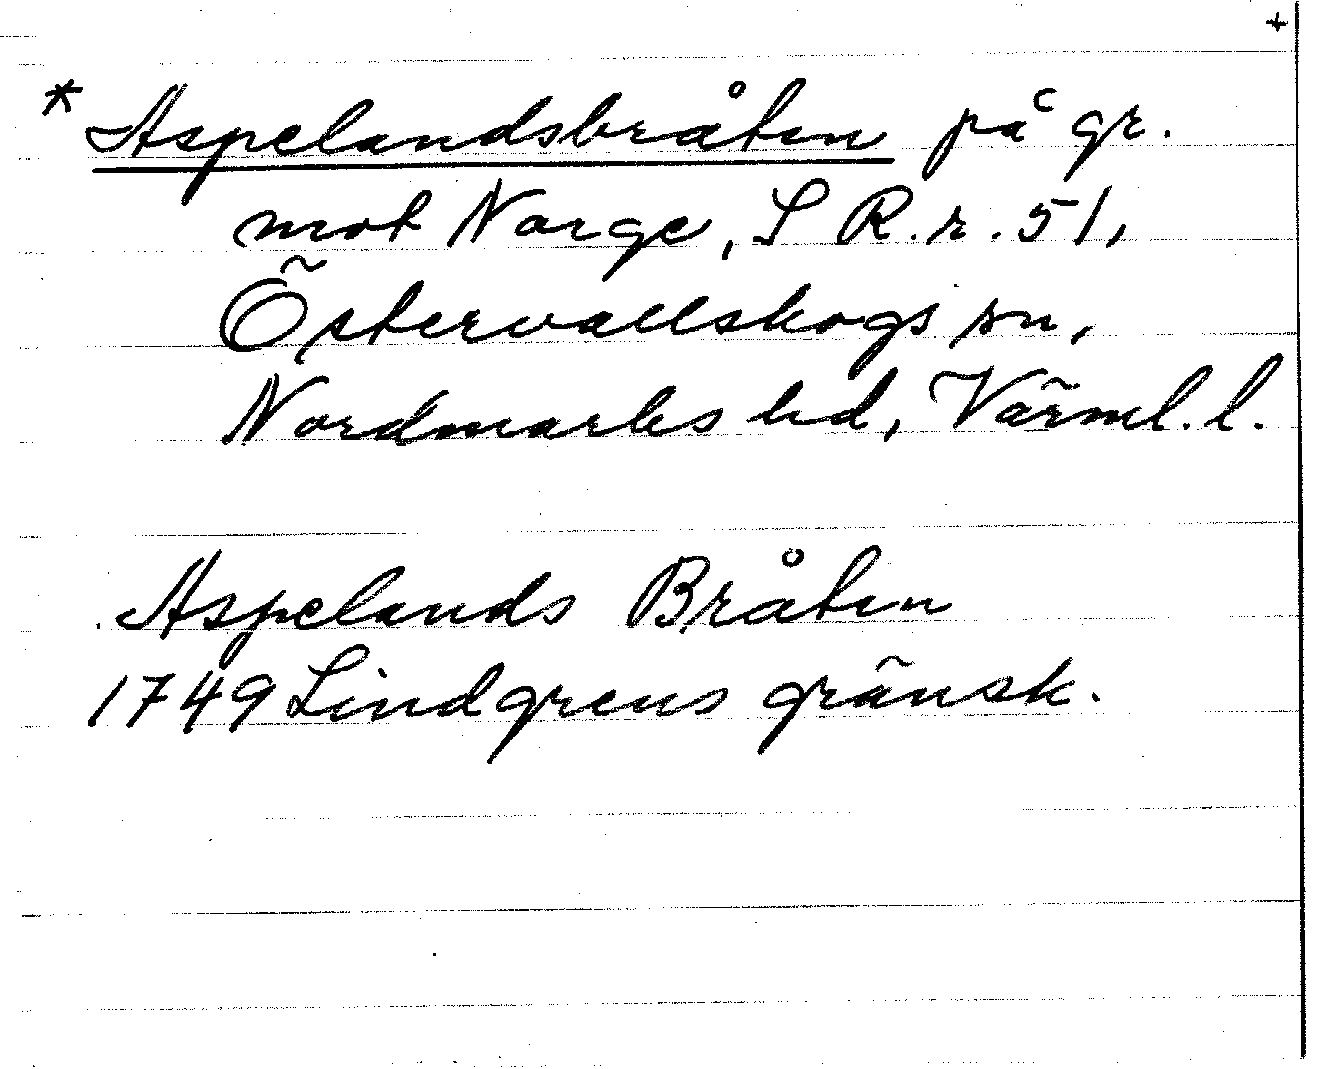 +
* Aspelandsbråten på gr.
mot Norge, S R.r. 51,
Östervallskogs sn,
Nordmarks hd, Värml. l.
Aspelands Bråten
1749 Lindgrens gränsk.